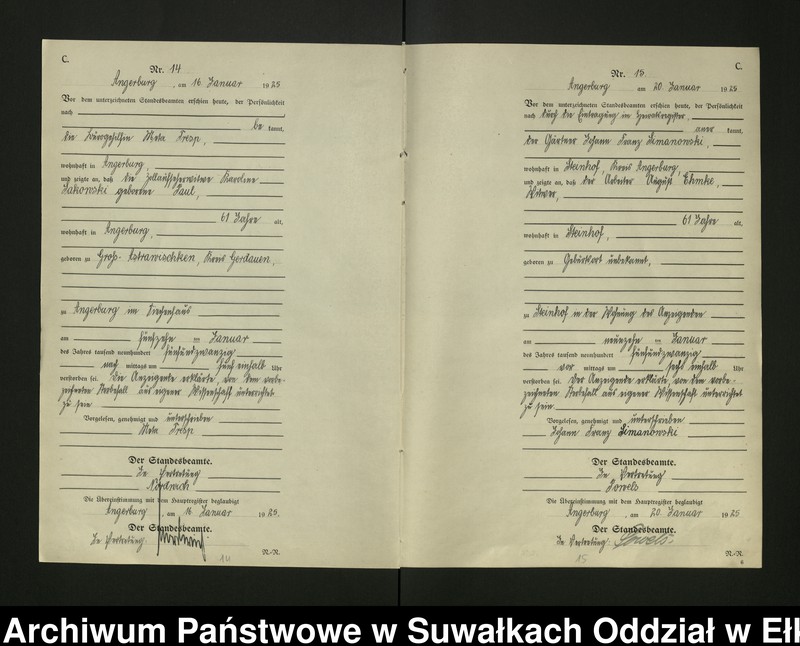 C.
Nr. 14
Angerburg, am 16 Januar 1925
Vor dem unterzeichneten Standesbeamten erschien heute, der Persönlichkeit
nach
be kannt,
die Bürogehilfin Meta Trosp,
wohnhaft in Angerburg
und zeigte an, daß die Karoline
Sakowski geborene Paul,
61 Jahre alt,
wohnhaft in Angerburg,
geboren zu Groß-Astrawischken, Kreis Gerdauen,
zu Angerburg im Siechenhaus
am fünfzehn ten Januar
des Jahres tausend neunhundert fünfundzwanzig
nach mittags um fünf einhalb Uhr
verstorben sei. Die Anzeigende erklärte, von dem vorbe-
zeichneten Sterbefall aus eigener Wissenschaft unterrichtet
zu sein
Vorgelesen, genehmigt und unterschrieben
Meta
Der Standesbeamte.
In Vertretung
Die Übereinstimmung mit dem Hauptregister beglaubigt
Angerburg, am 16 Januar 1925.
Der Standesbeamte.
In Vertretung.
N.-N.
14
C.
Nr. 15
Angerburg am 20. Januar 1925
Vor dem unterzeichneten Standesbeamten erschien heute, der Persönlichkeit
nach durch die Eintragung im
aner kannt,
der Gärtner Johann Franz Simanowski,
wohnhaft in Steinhof, Kreis Angerburg,
und zeigte an, daß der Arbeiter August Ehmke,
Witwer,
61 Jahre alt,
wohnhaft in Steinhof,
geboren zu Geburtsort unbekannt,
zu Steinhof in der Wohnung des Anzeigenden
am neunzehn ten Januar
des Jahres tausend neunhundert fünfundzwanzig
vor mittags um sechs einhalb Uhr
verstorben sei. Der Anzeigende erklärte, von dem vorbe-
zeichneten Sterbefall aus eigener Wissenschaft unterrichtet
zu sein
Vorgelesen, genehmigt und unterschrieben
Johann Franz Simanowski
Der Standesbeamte.
In Vertretung
Die Übereinstimmung mit dem Hauptregister beglaubigt
Angerburg, am 20. Januar 1925
Der Standesbeamte.
In Vertretung:
N.-N.
15
6
Archiwum Państwowe w Suwałkach Oddział w Ełk